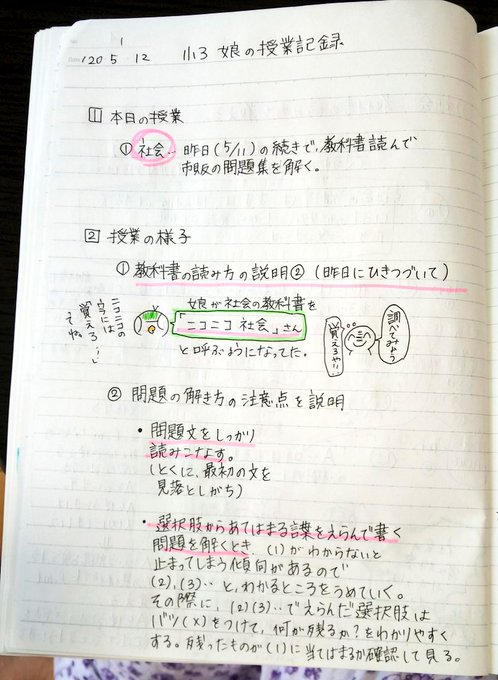 '20 5 12 小3 娘の授業記録
1 本日の授業
① 社会… 昨日(5/11)の続きで、教科書読んで
市販の問題集を解く。
2 授業の様子
① 教科書の読み方の説明② (昨日にひきつづいて)
娘が社会の教科書を
「ニコニコ 社会」さん
と呼ぶようになってた。
ニコニコの
覚えろ…!
調べてみよう
覚えろや!!
② 問題の解き方の注意点を説明
・問題文をしっかり
読みこなす。
(とくに、最初の文を
見落としがち)
・選択肢からあてはまる言葉をえらんで書く
問題を解くとき、(1)がわからないと
止まってしまう傾向があるので
(2),(3)‥と、わかるところをうめていく。
その際に、(2)(3)‥でえらんだ選択肢は
バツ(×)をつけて、何が残るか?をわかりやすく
する。残ったものが(1)に当てはまるか確認して見る。